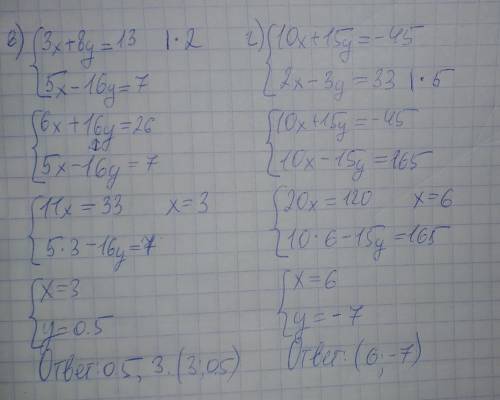 в) {3x+8y=13 |·2
5x-16y=7
{6x+16y=26
5x-16y=7
{11x=33 x=3
5·3-16y=7
{x=3
y=0.5
Ответ: 0.5, 3. (3; 0.5)
г) {10x+15y=-45
2x-3y=33 |·5
{10x+15y=-45
10x-15y=165
{20x=120 x=6
10·6-15y=165
{x=6
y=-7
Ответ: (6; -7)